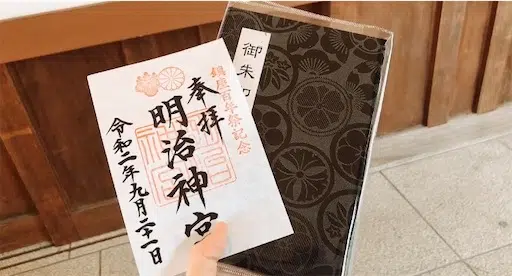 御朱
鎮座百年祭記念
奉拝
明治神宮
令和二年九月二十一日